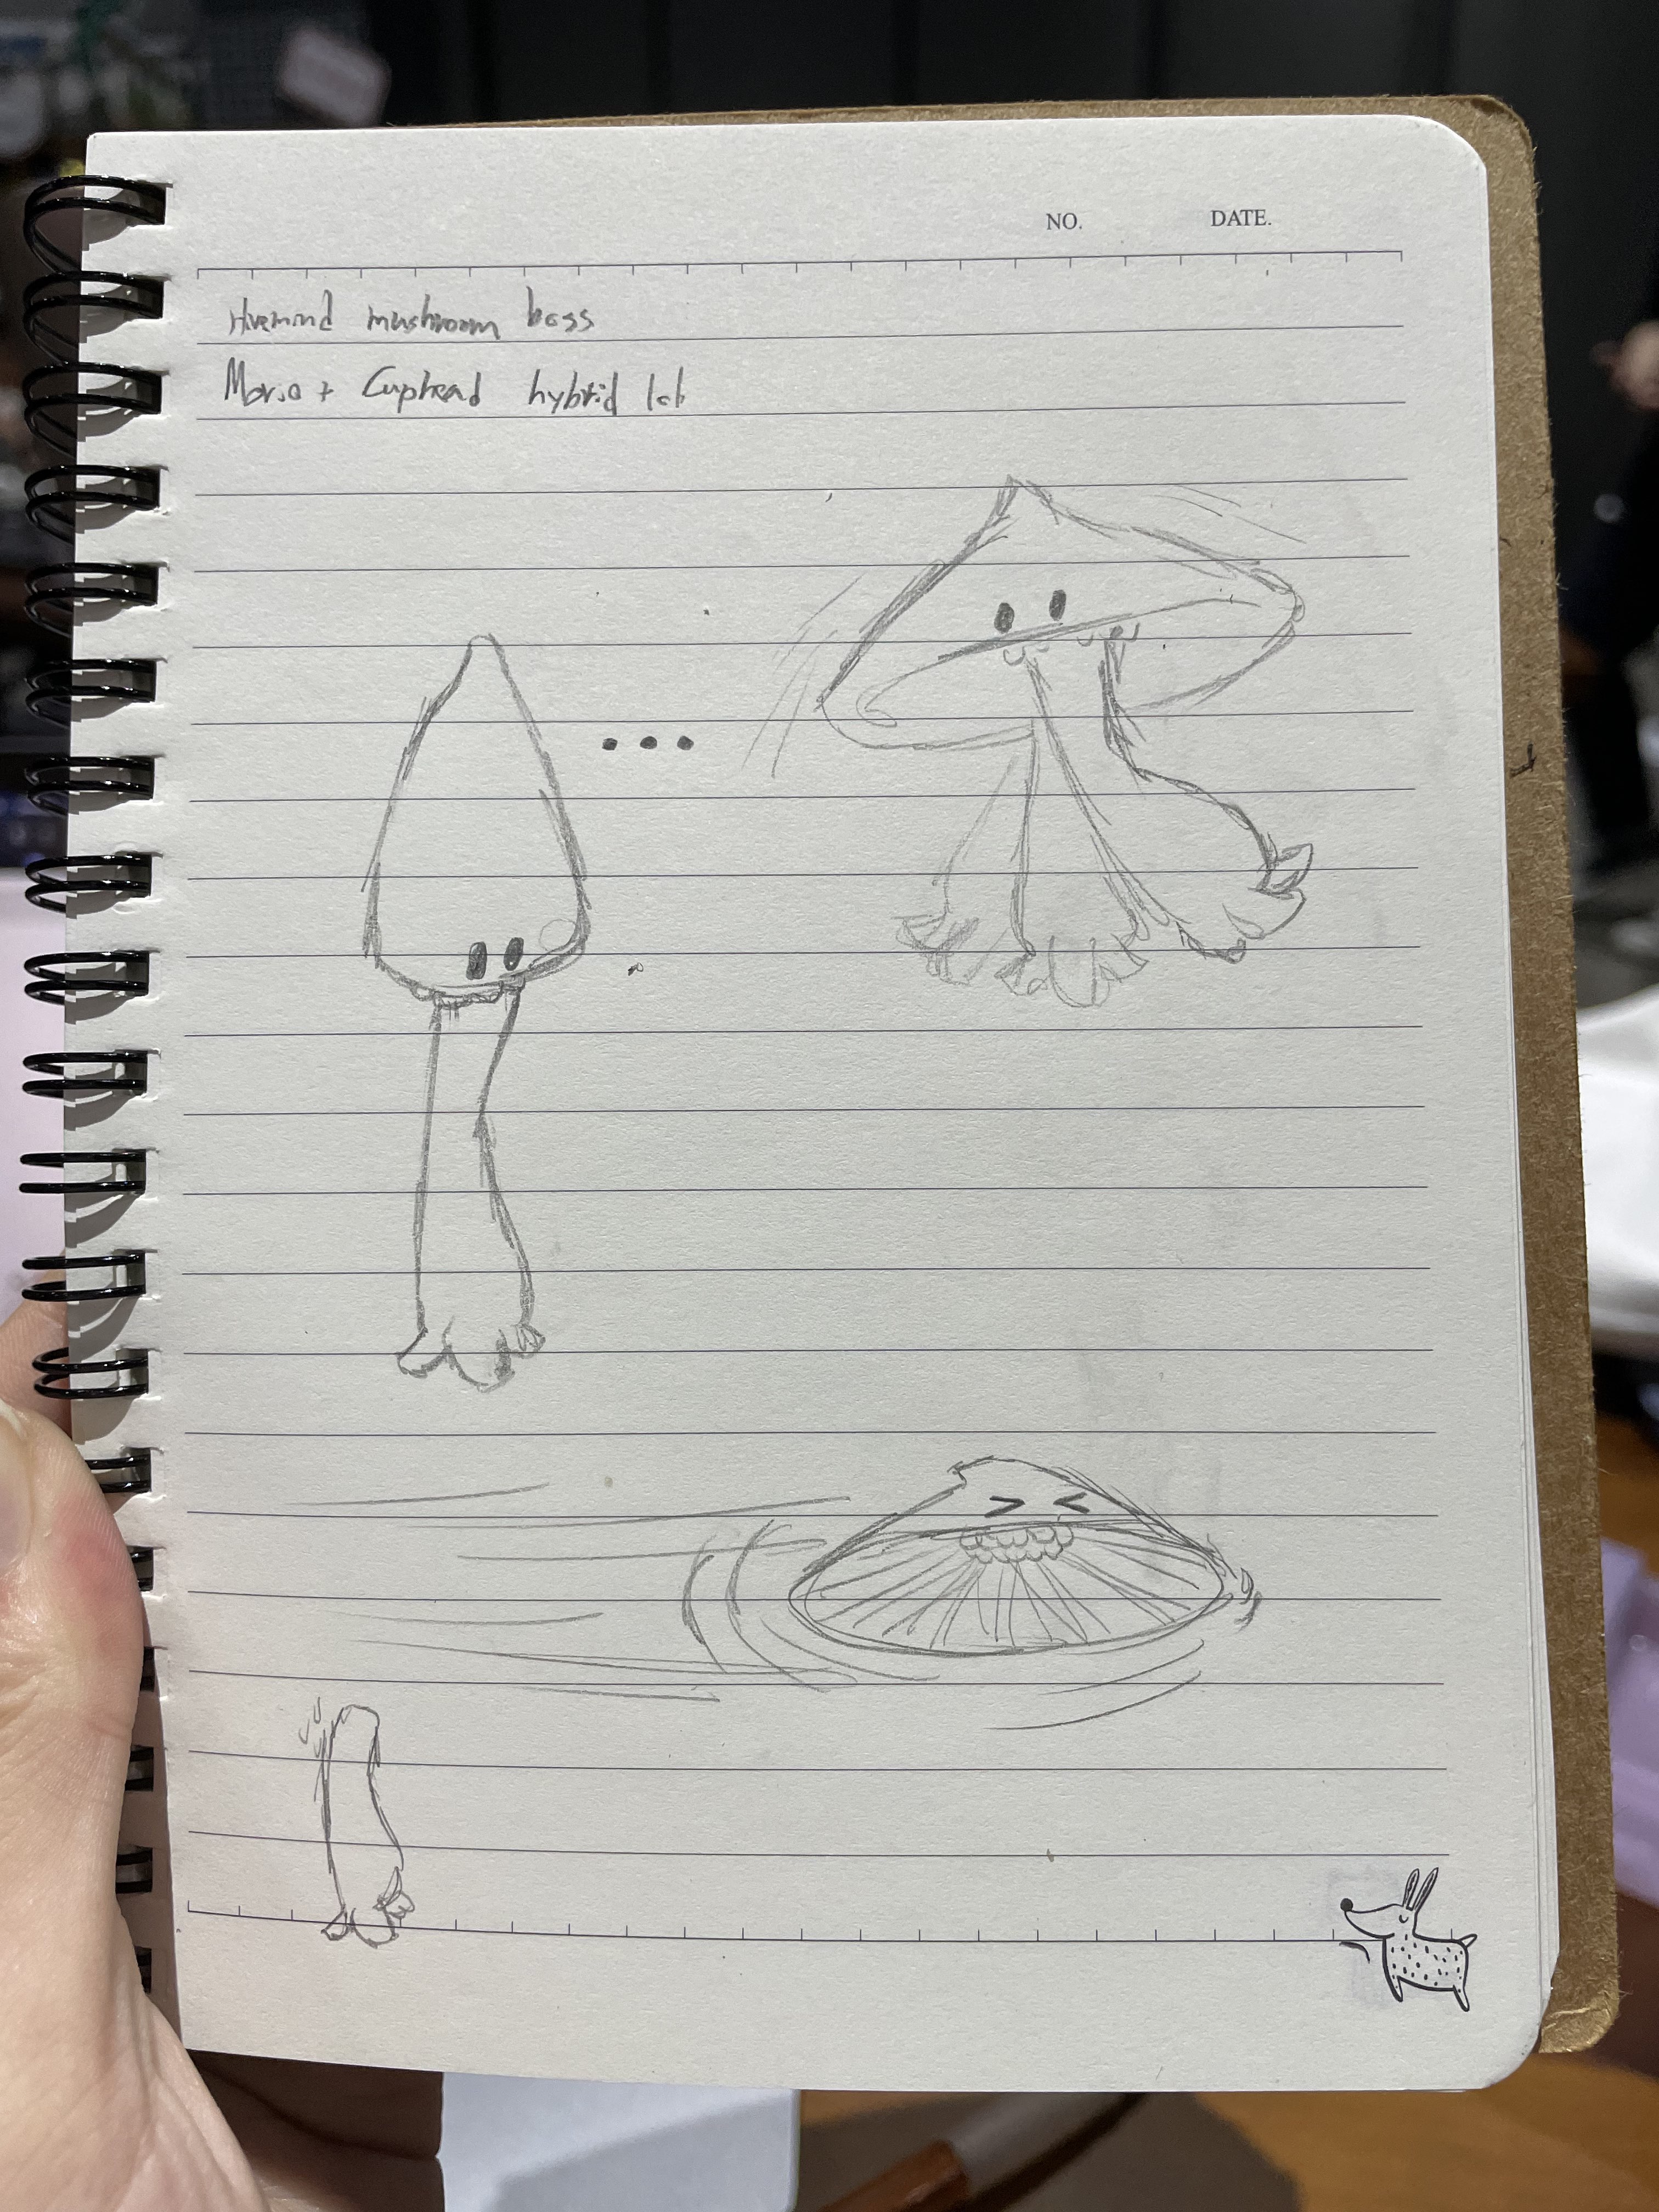 NO. DATE.
Hivemind mushroom boss
Mario + Cuphead hybrid